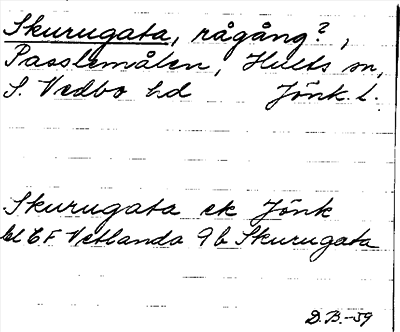 Skurugata, rågång?,
Passlemålen, Hults sn,
S. Vedbo hd Jönk. l.
Skurugata ek Jönk
bl 6F Vetlanda 9b Skurugata
D.B.-59